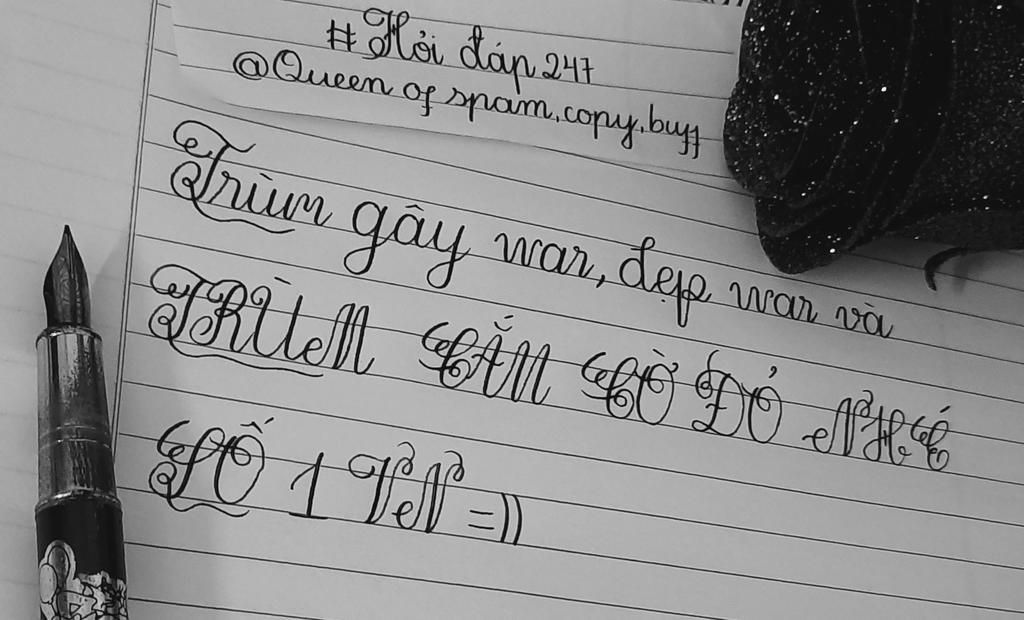 #Hỏi đáp 247
@Queen of spam, copy, buff
Trùm gây war, dẹp war và
TRÙM CẮM CỜ ĐỎ NHÉ
SỐ 1 VN =))